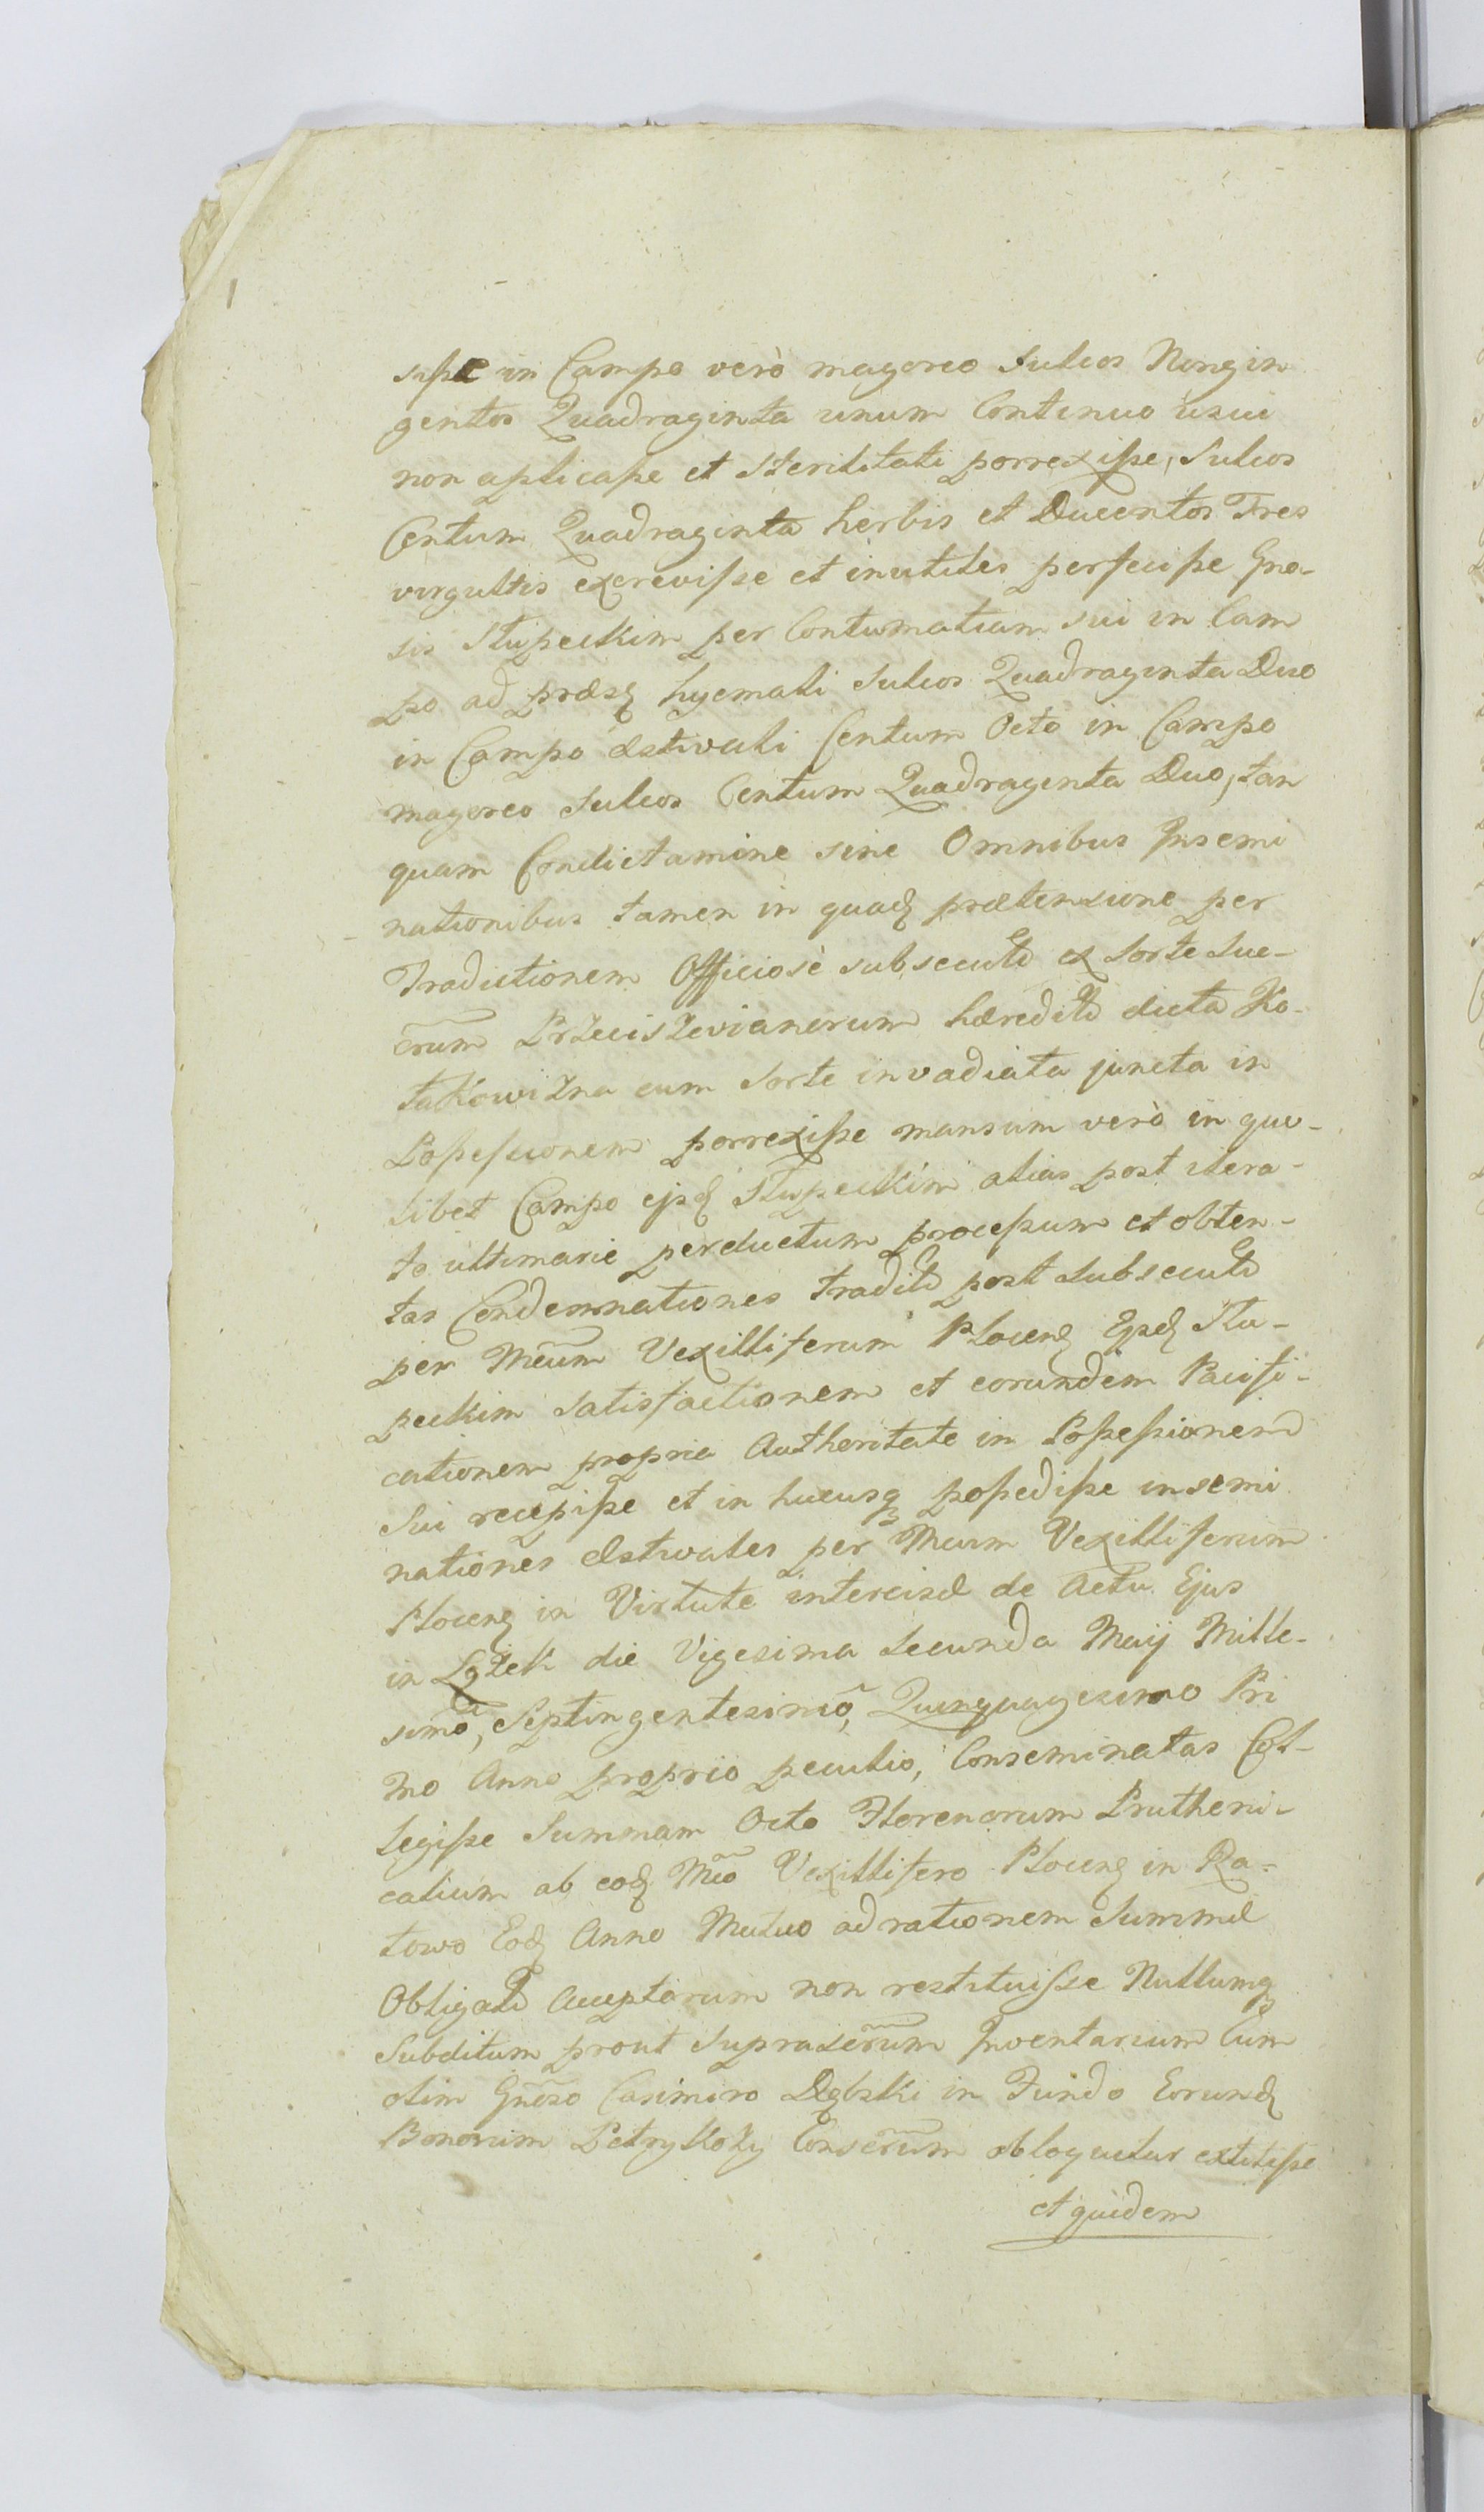 sisse in Campo verò magereo Sulcos Nongin
gentos Quadraginta unum Continuo usui
non aplicasse et Sterilitati porrexisse, Sulcos
Centum Quadraginta herbis et Ducentos Tres
virgultis excrevisse et inutiles perfecisse Gno-
sis Slupeckim per Contumatiam sui in Cam
po ad præsę hyemali Sulcos Quadraginta Duo
in Campo æstivali Centum Octo in Campo
magereo Sulcos Centum Quadraginta Duo, tan
quam Condictamine sine Omnibus Insemi
nationibus tamen in quaę prætensione per
Traditionem Officiosè subsecutæ ex Sorte Suc-
crum Przeciszevianorum hæreditæ dicta Ko-
takowizna cum Sorte invadiata juncta in
Possessionem porrexisse mansum verò in quo-
libet Campo ejsdę Slupeckim alias post itera-
to ultimarie perductum processum et obten-
tas Condemnationes traditæ post Subsecutæ
per Mcum Vexilliferum Plocenę Gnsdę Slu-
peckim Satisfactionem et eorundem Pacifi-
cationem propria Authoritate in Possessionem
Sui recepisse et in hucusq possedisse insemi
nationes æstivales per Mcum Vexilliferum
Plocenę in Virtute intercisæ de Actu Ejus
in Lążek die Vigesima Secunda Maij Mille-
simo, Septingentesimo, Quinquagesimo Pri
mo Anno proprio peculio, Conseminatas Col-
legisse Summam Octo Florenorum Prutheni-
calium ab eodę Mco Vexillifero Plocenę in Ra-
towo Eodę Anno Mutuo ad rationem Summæ
Obligatæ Acceptorum non restituisse Nullumq
Subditum prout Suprascrum Inventarium Cum
olim Gnoso Casimiro Dębski in Fundo Eorundę
Bonorum Petrykozy Conscrum obloquitur extitisse
et quidem